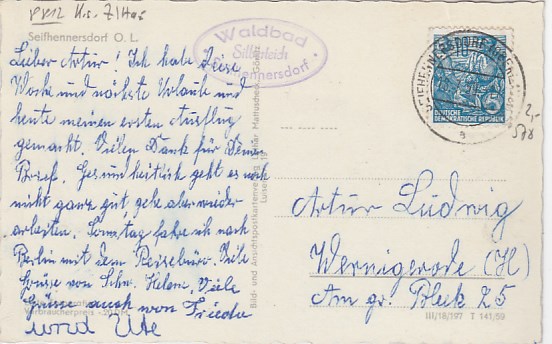 Seifhennersdorf O. L.
Waldbad
Silberteich
Seifhennersdorf
Lieber Artur! Ich habe diese
Woche und nächste Urlaub und
heute meinen ersten Ausflug
gemacht. Vielen Dank für Deinen
Brief. Gesundheitlich geht es noch
nicht ganz gut, gehe aber wieder
arbeiten. Sonntag fahre ich nach
Berlin mit dem Reisebüro. Viele
Grüsse von Schw. Helene, Viele
Grüsse auch von Frieda
und Ute
Verbraucherpreis
Bild- und Ansichtskartenverlag
DEUTSCHE
DEMOKRATISCHE REPUBLIK
Artur Ludwig
Wernigerode (H)
Am gr. Bleek 25
III/18/197 T 141/59